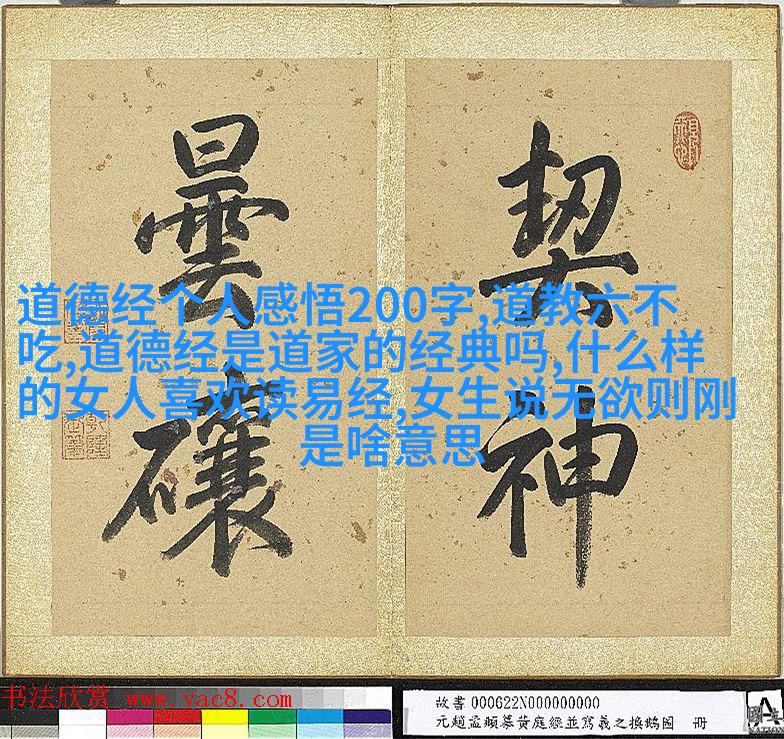 契神
曇
道德经个人感悟200字,道教六不
吃,道德经是道家的经典吗,什么样
的女人喜欢读易经,女生说无欲则刚
是啥意思
书法欣赏 www.yac8.com
故書000622N000000000
元趙孟頫摹黃庭經並寫羲之換鵝圖 冊